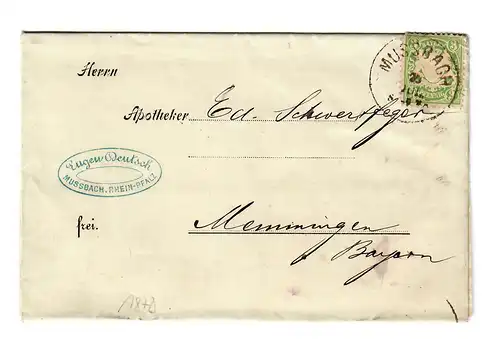 Herrn
Apotheker Ed. Schwertfeger
Eugen Deutsch
MUSSBACH, RHEIN-PFALZ
frei.
Memmingen
Bayern
MUSSBACH
3